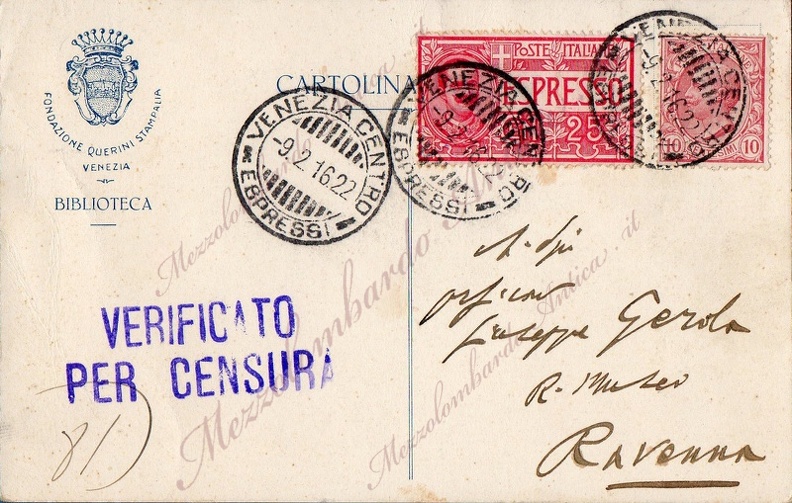 FONDAZIONE QUERINI STAMPALIA
VENEZIA
BIBLIOTECA
CARTOLINA
POSTE ITALIANE
ESPRESSO
25
10
10
VENEZIA CENTRO
-9.2.16.22
ESPRESSI
VENEZIA CENTRO
-9.2.16.22
ESPRESSI
VENEZIA CENTRO
-9.2.16.22
VERIFICATO
PER CENSURA
81)
Giuseppe Gerola
R. Museo
Ravenna
Mezzolombardo Antica.it
Mezzolombardo Antica.it